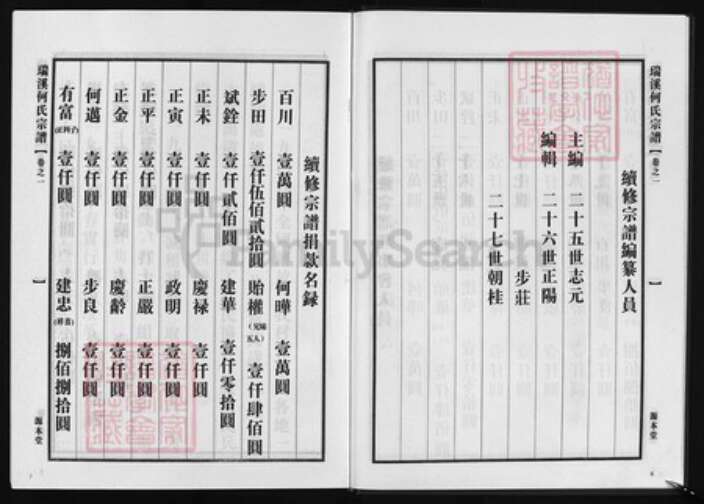 瑞溪何氏宗譜【卷之一】
續修宗譜編纂人員
主編 二十五世志元
編輯 二十六世正陽
步莊
二十七世朝桂
源本堂
續修宗譜捐款名錄
百川 壹萬圓 何曄 壹萬圓
步田 壹仟伍佰貳拾圓 貽權 壹仟肆佰圓
斌銓 壹仟貳佰圓 建華 壹仟零拾圓
正未 壹仟圓 慶祿 壹仟圓
正寅 壹仟圓 政明 壹仟圓
正平 壹仟圓 正嚴 壹仟圓
正金 壹仟圓 慶齡 壹仟圓
何邁 壹仟圓 步良 壹仟圓
有富 壹仟圓 建忠 捌佰捌拾圓
瑞溪何氏宗譜【卷之一】
源本堂
FamilySearch